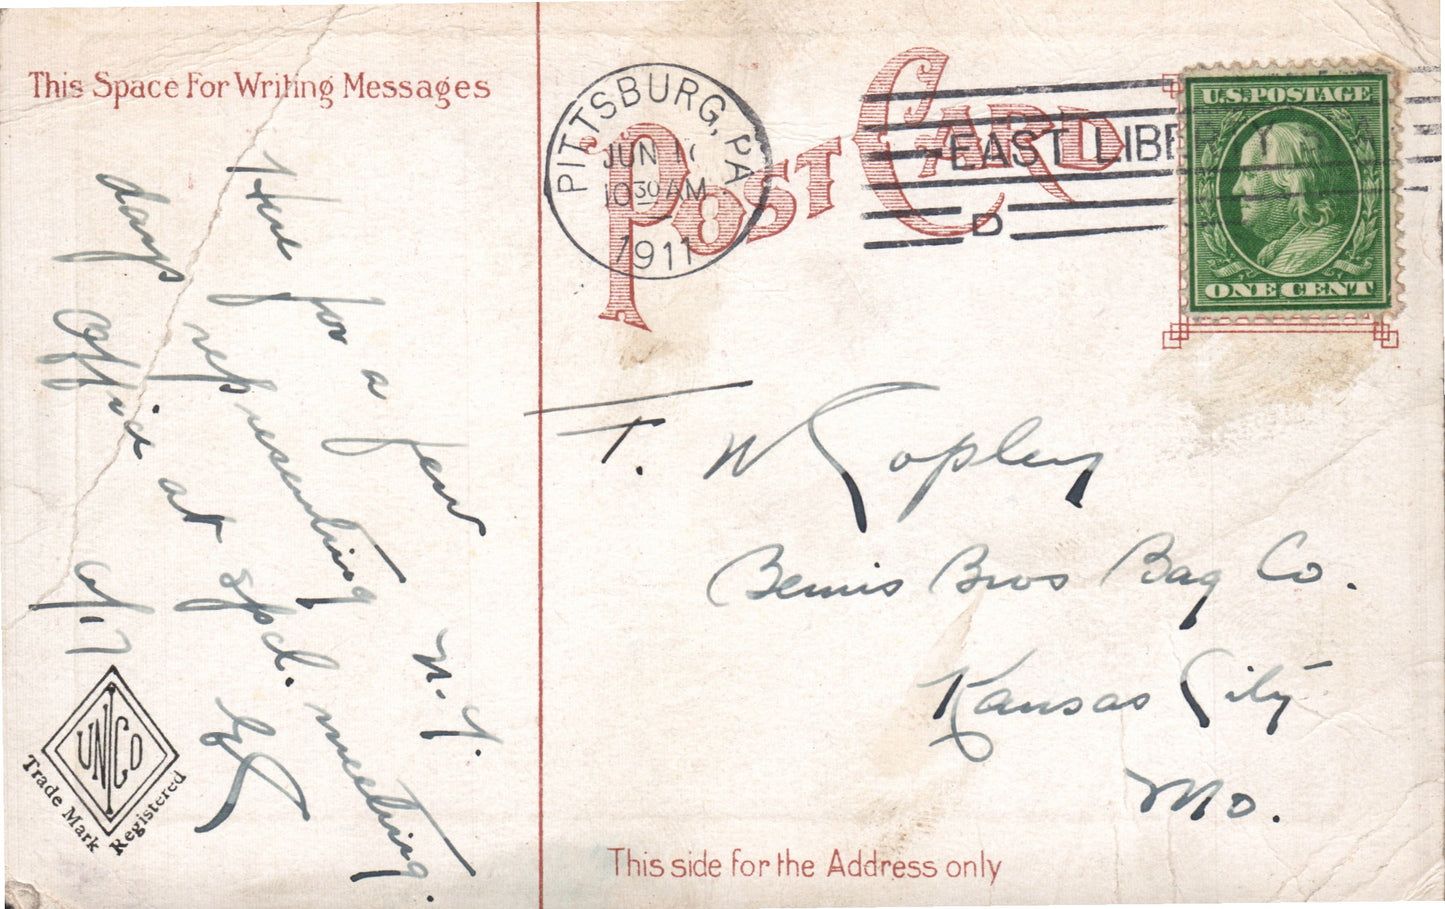 This Space For Writing Messages
Here for a few
days representing N.Y.
Office at spcl. meeting.
6/17
UNICO
Trade Mark Registered
POST CARD
PITTSBURG, PA
JUN 1
10 30 AM
1911
EAST LIBERTY STA
D
U.S. POSTAGE
ONE CENT
T. W Copley
Bemis Bros Bag Co.
Kansas City
Mo.
This side for the Address only